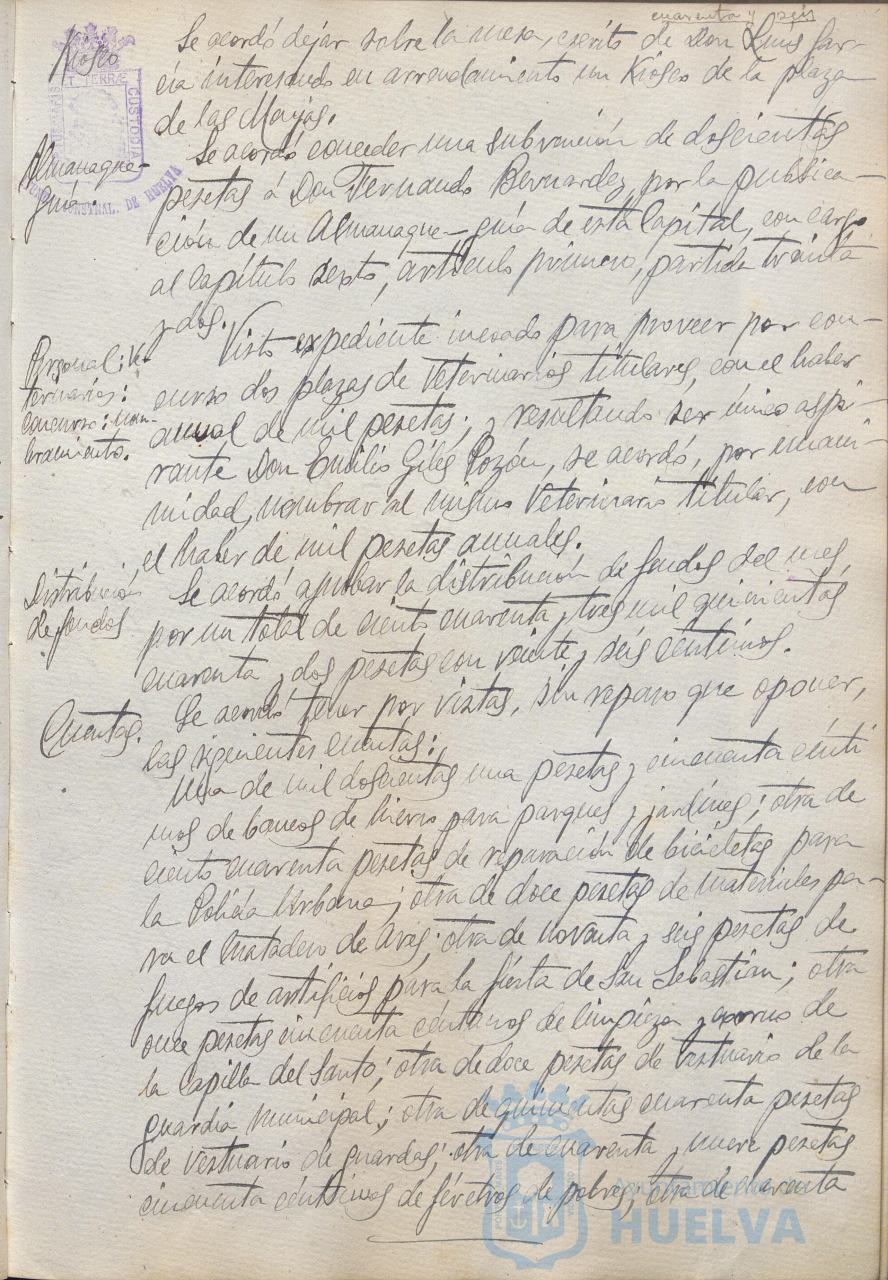 cuarenta y seis
Kiosco
Se acordó dejar sobre la mesa, escrito de Don Luis Gar-
cía interesando en arrendamiento un Kiosco de la plaza
de las Monjas.
Almanaque-
guía.
Se acordó conceder una subvención de doscientas
pesetas á Don Fernando Bernardez, por la publica-
ción de un Almanaque-guía de esta Capital, con cargo
al Capítulo sexto, artículo primero, partida treinta
y dos.
Personal: Ve-
terinarios:
concurso: nom-
bramiento.
Visto expediente incoado para proveer por con-
curso dos plazas de Veterinarios titulares, con el haber
anual de mil pesetas; y resultando ser único aspi-
rante Don Emilio Giles Pozón, se acordó, por unani-
midad, nombrar al mismo Veterinario titular, con
el haber de mil pesetas anuales.
Distribución
de fondos
Se acordó aprobar la distribución de fondos del mes
por un total de ciento cuarenta y tres mil quinientas
cuarenta y dos pesetas con veinte y seis céntimos.
Cuentas.
Se acordó tener por vistas, sin reparo que oponer,
las siguientes cuentas:
Una de mil doscientas una pesetas y cincuenta cénti
mos de bancos de hierro para parques y jardines; otra de
ciento cuarenta pesetas de reparación de bicicletas para
la Policía Urbana; otra de doce pesetas de materiales pa-
ra el Matadero de Aves; otra de noventa y seis pesetas de
fuegos de artificios para la fiesta de San Sebastián; otra
once pesetas cincuenta céntimos de limpieza y de
la Capilla del Santo; otra de doce pesetas de Vestuario de la
guardia Municipal; otra de quinientas cuarenta pesetas
de Vestuario de guardas; otra de cuarenta y nueve pesetas
cincuenta céntimos de féretros de pobres; otra de cuarenta
CUSTODIA
DE HUELVA
Ayuntamiento de
HUELVA